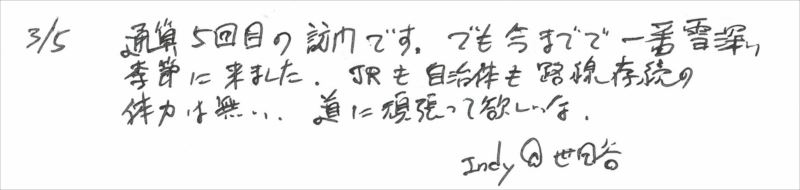 3/5 通算5回目の訪門です。でも今までで一番雪深い
季節に来ました。JRも自治体も路線存続の
体力は無い、道に頑張って欲しいな。
Indy@世田谷